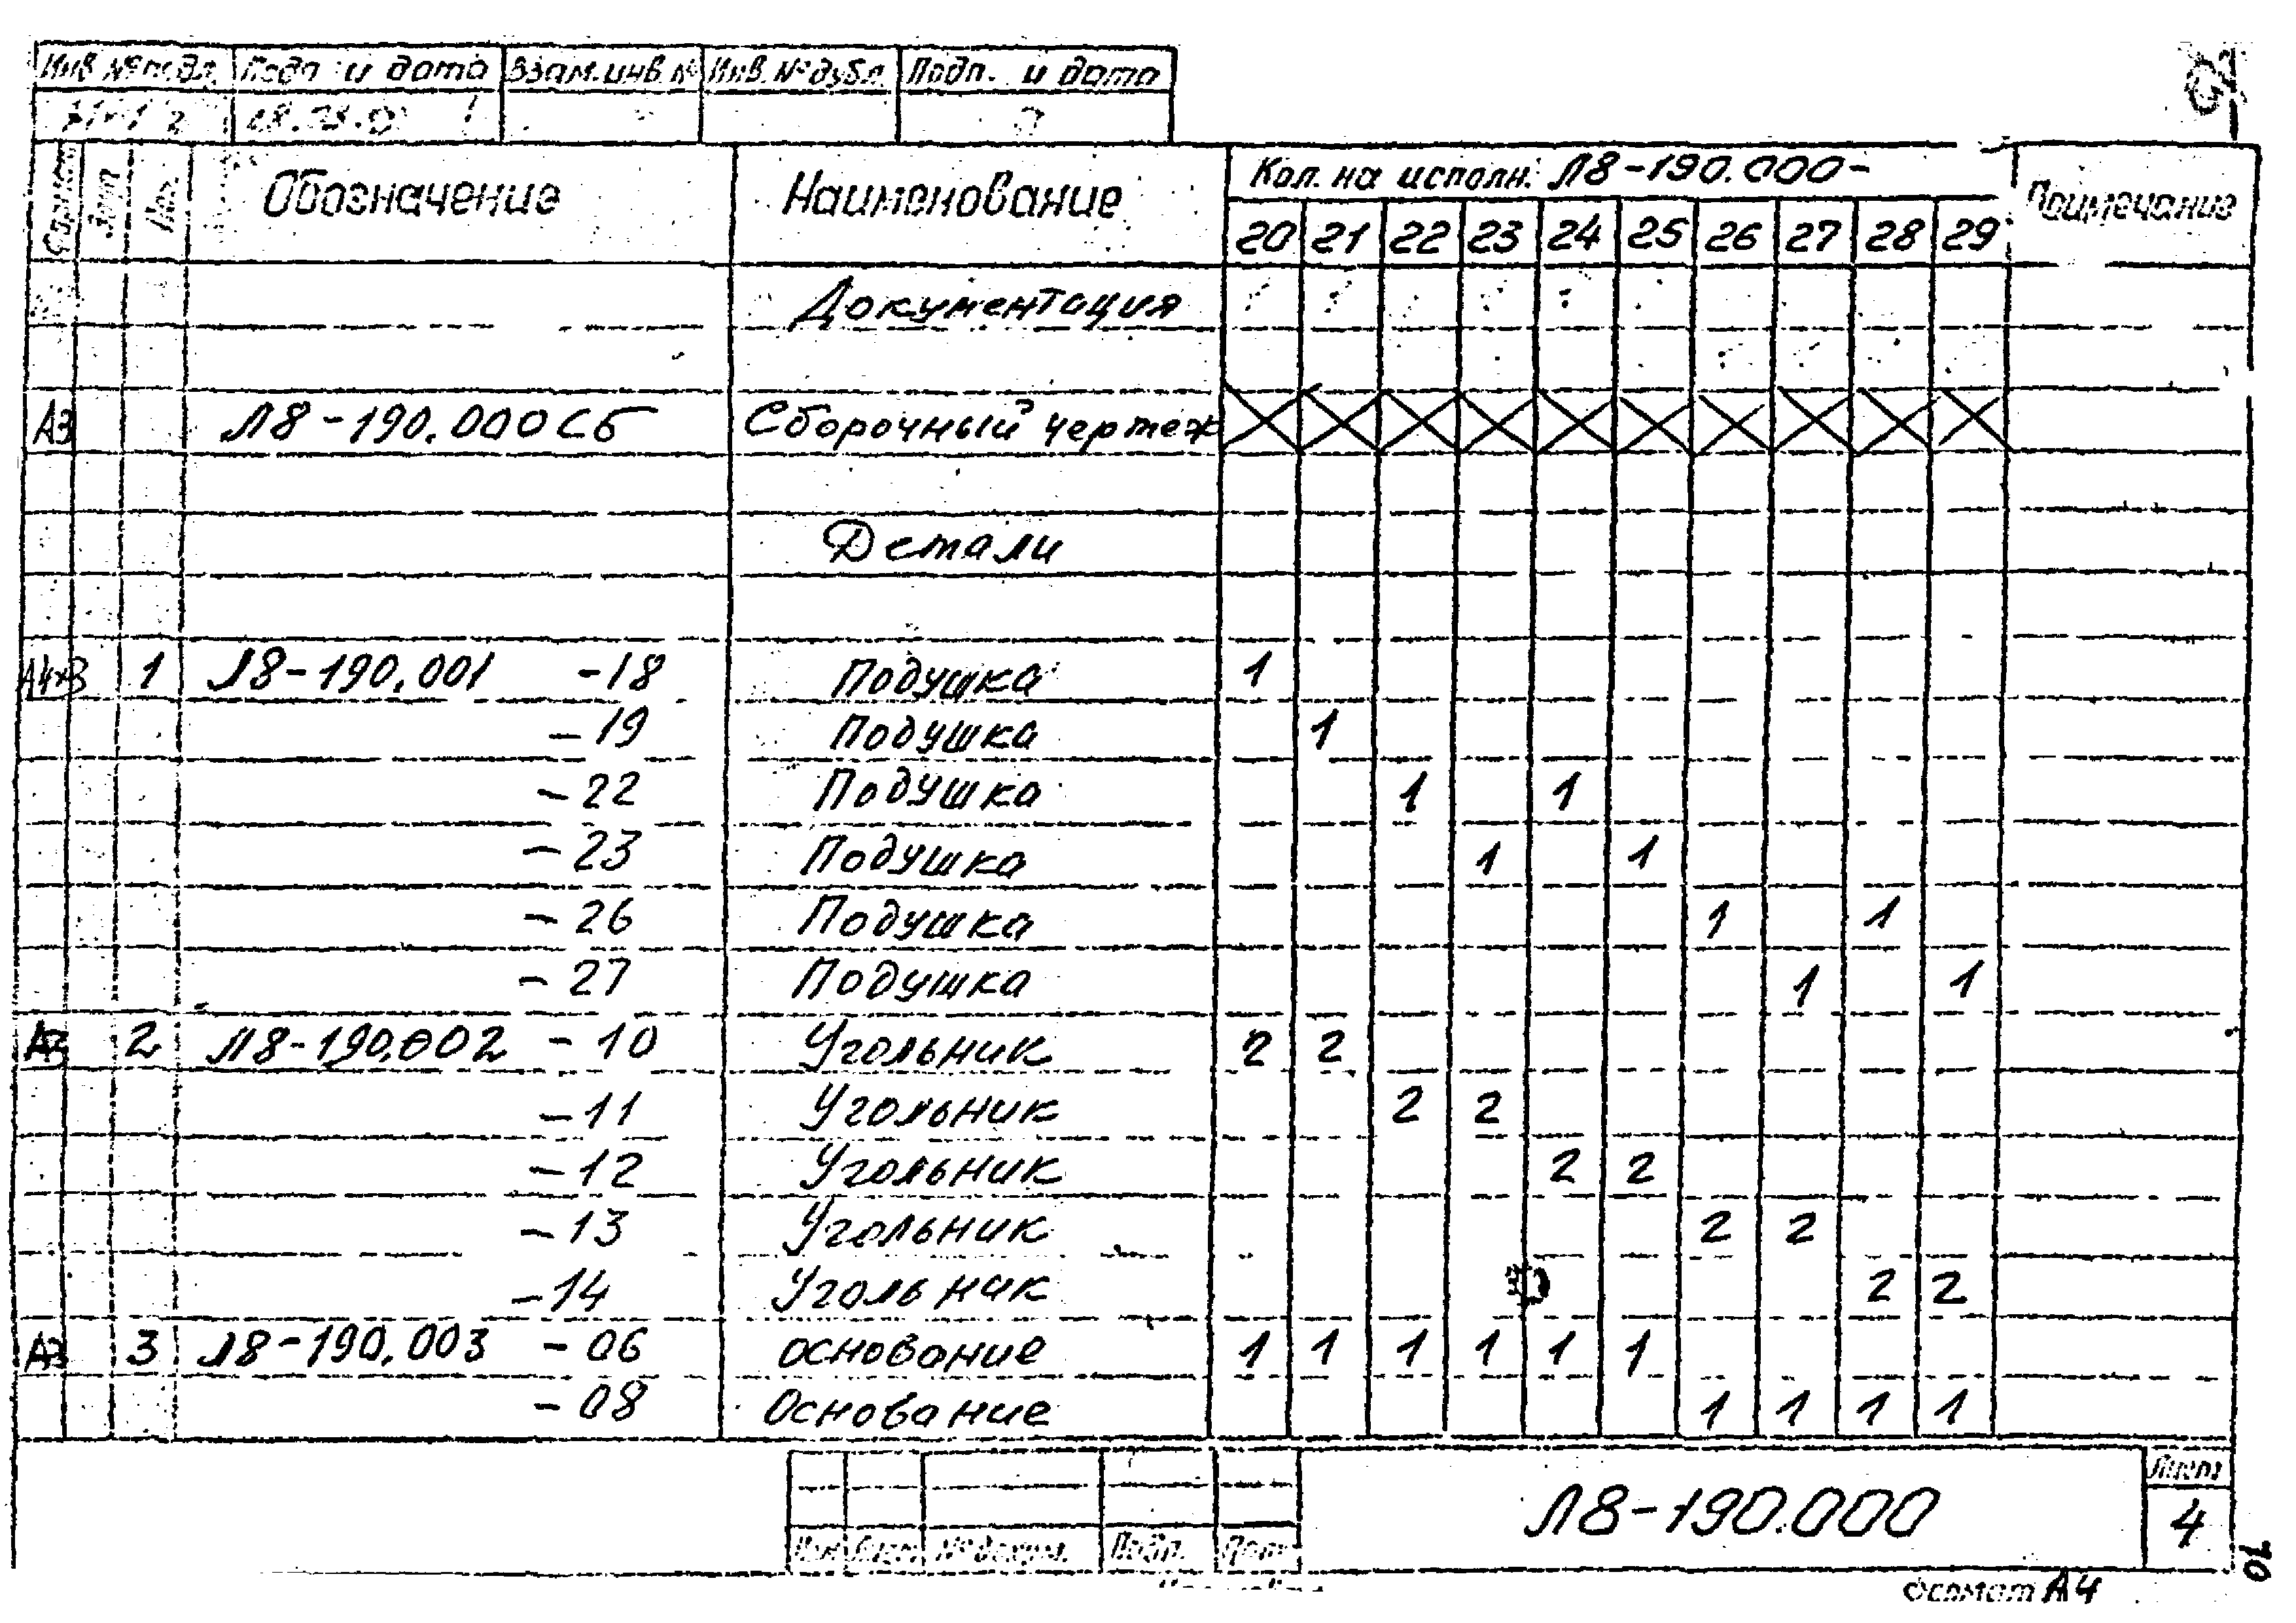 Инв. № подл. Подп. и дата Взам. инв. № Инв. № дубл. Подп. и дата
Формат Зона Поз. Обозначение Наименование Кол. на исполн. Л8-190.000- Примечание
20 21 22 23 24 25 26 27 28 29
Документация
А3 Л8-190.000СБ Сборочный чертеж
Детали
А4х3 1 Л8-190.001 -18 Подушка 1
-19 Подушка 1
-22 Подушка 1 1
-23 Подушка 1 1
-26 Подушка 1 1
-27 Подушка 1 1
А3 2 Л8-190.002 -10 Угольник 2 2
-11 Угольник 2 2
-12 Угольник 2 2
-13 Угольник 2 2
-14 Угольник 2 2
А3 3 Л8-190.003 -06 основание 1 1 1 1 1 1
-08 Основание 1 1 1 1
Л8-190.000
Лист
4
№ докум. Подп.
Формат А4
70